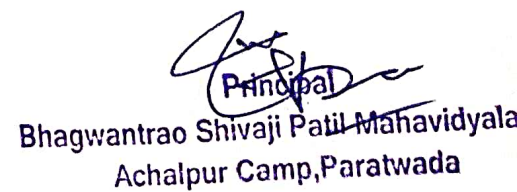 Principal
Bhagwantrao Shivaji Patil Mahavidyala
Achalpur Camp,Paratwada